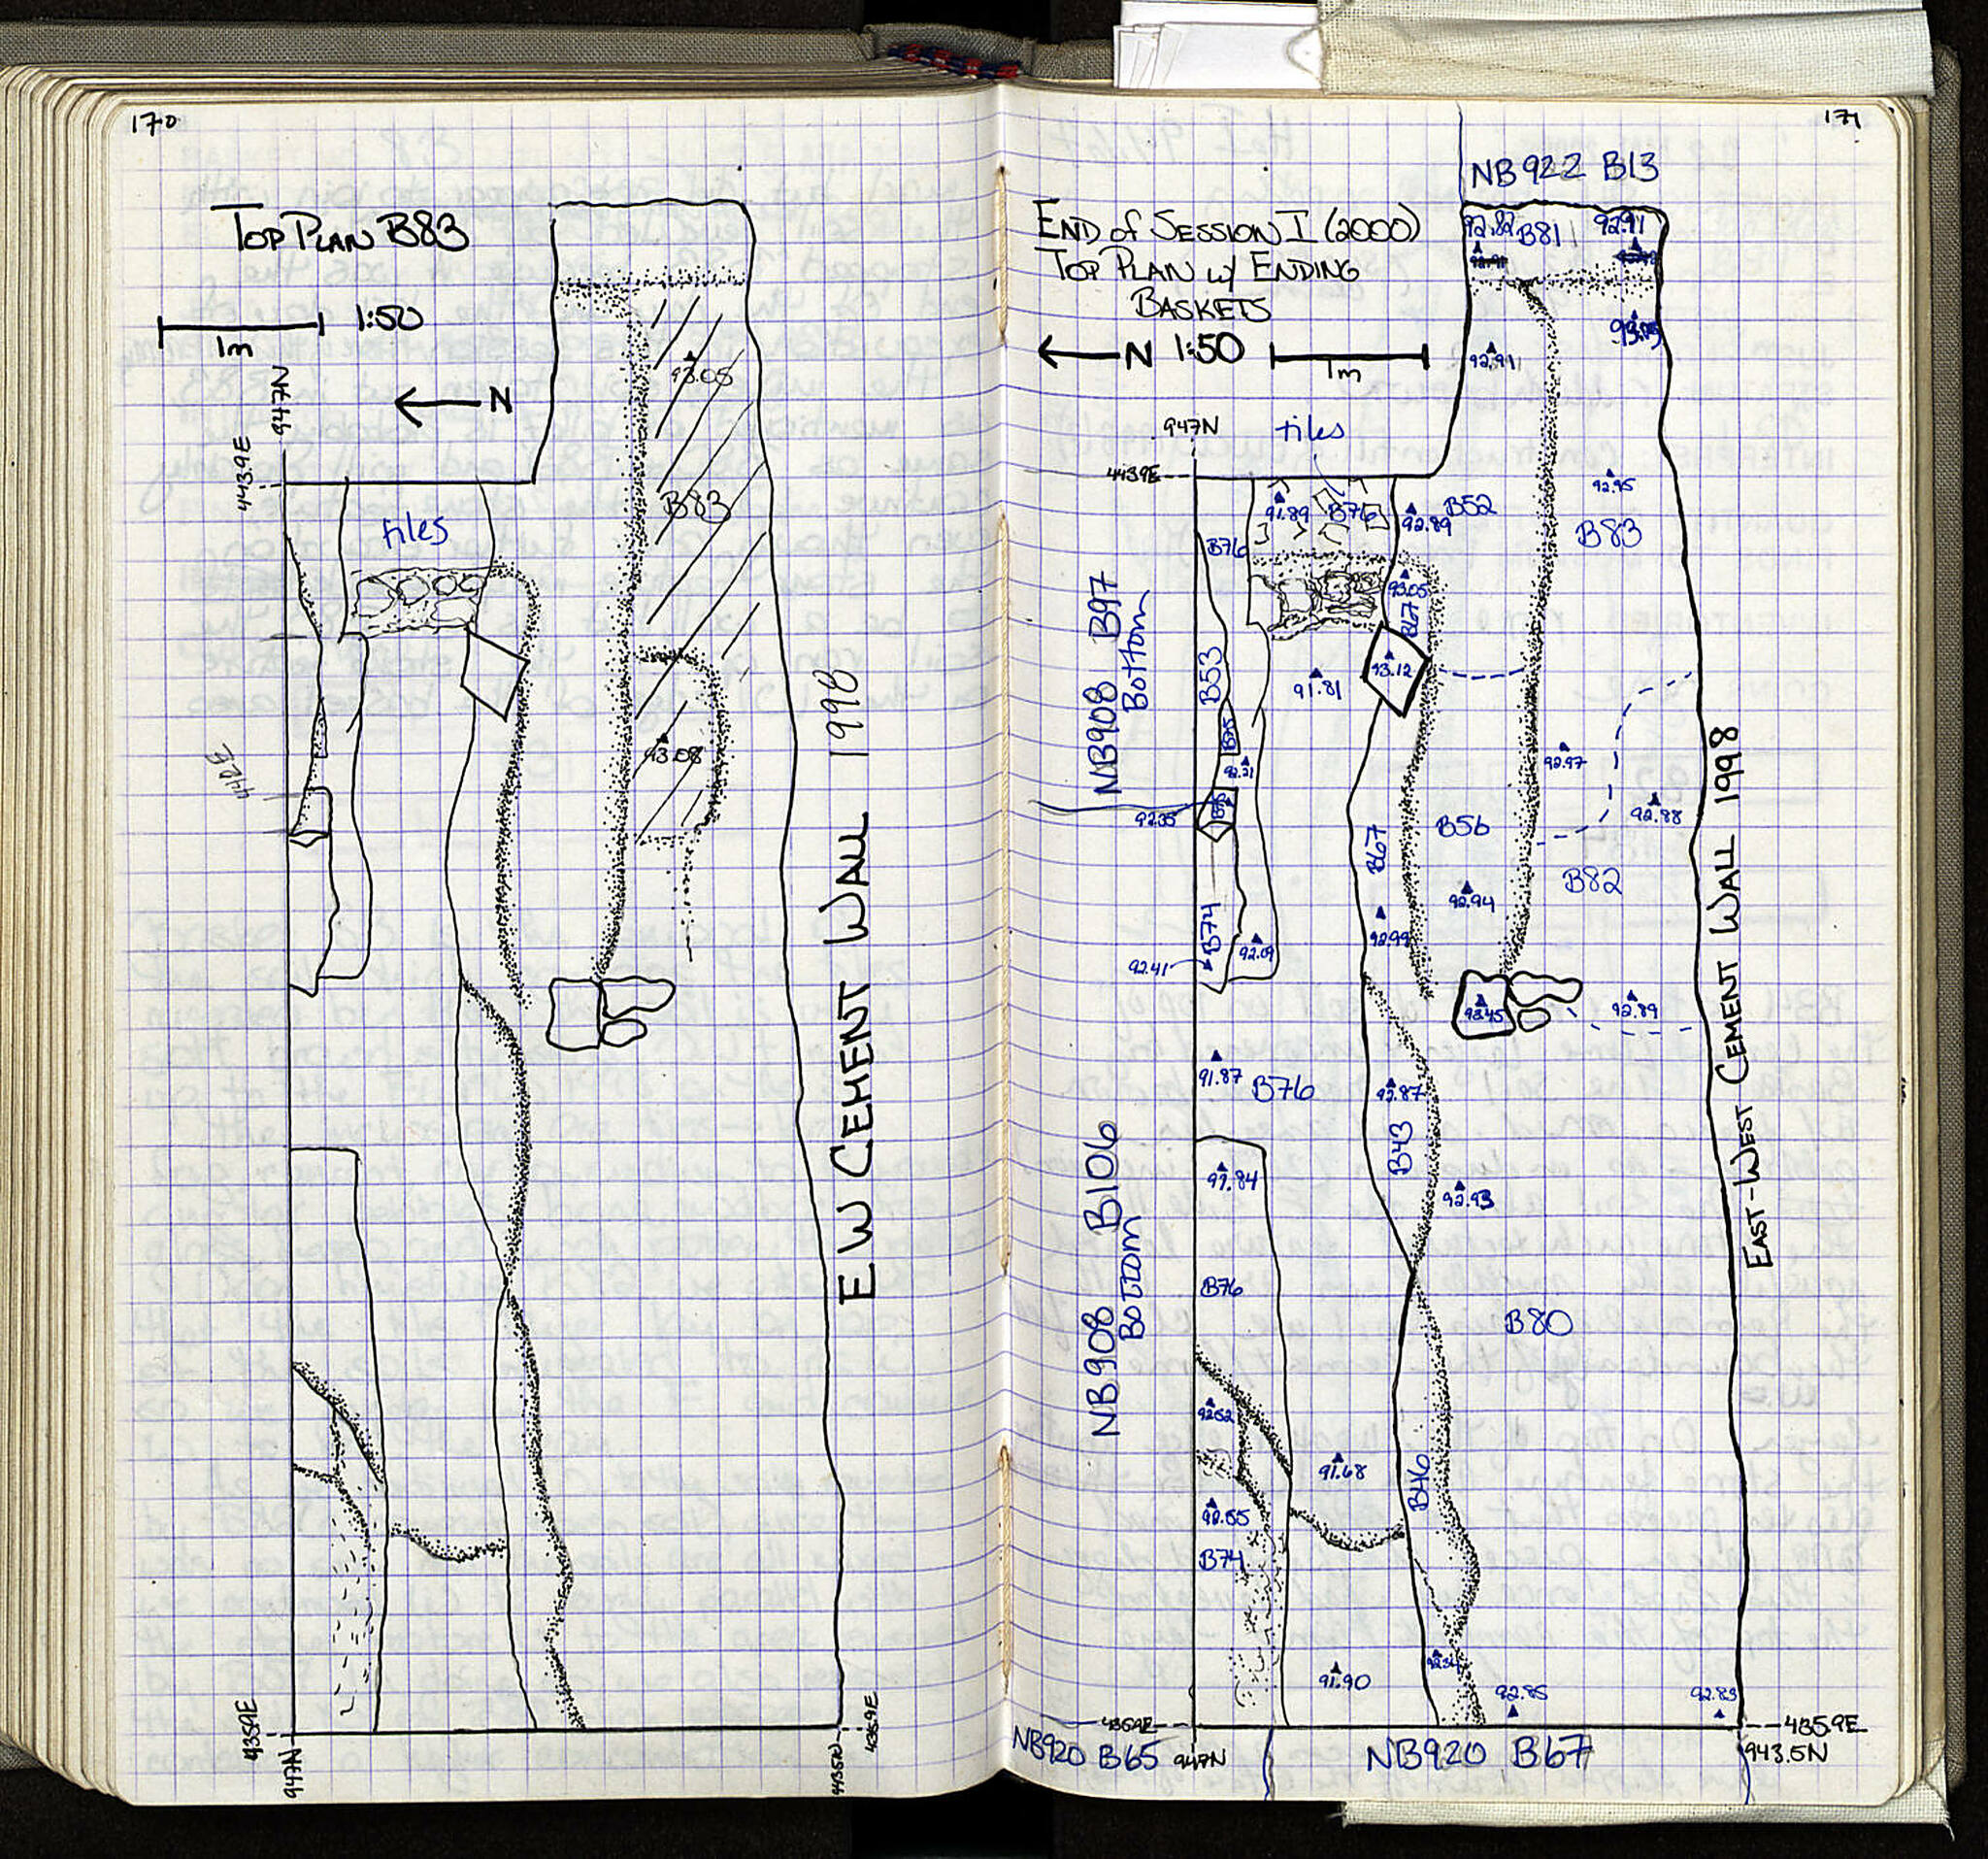 170
TOP PLAN B83
1:50
1m
N
947N
443.9E
tiles
93.05
B83
93.08
442E
E W CEMENT WALL 1998
435.9E
947N
943.5N
435.9E
171
NB922 B13
END of SESSION I (2000)
TOP PLAN w/ ENDING
BASKETS
N 1:50
1m
92.82 B81 92.91
92.91
947N
tiles
443.9E
91.89 B76
92.89 B52
92.95
B83
B76
93.05
B67
NB908 B97
Bottom
B53
93.12
91.81
92.97
92.21
92.35
92.88
B67
B56
B82
92.94
92.99
B74
92.41
92.09
92.89
91.87 B76
92.87
B43
NB908 B106
BOTTOM
91.84
92.93
B76
B80
EAST-WEST CEMENT WALL 1998
92.52
91.68
B46
92.55
B74
91.90
92.85
92.83
435.9E
435.9E
NB920 B65
947N
NB920 B67
943.5N